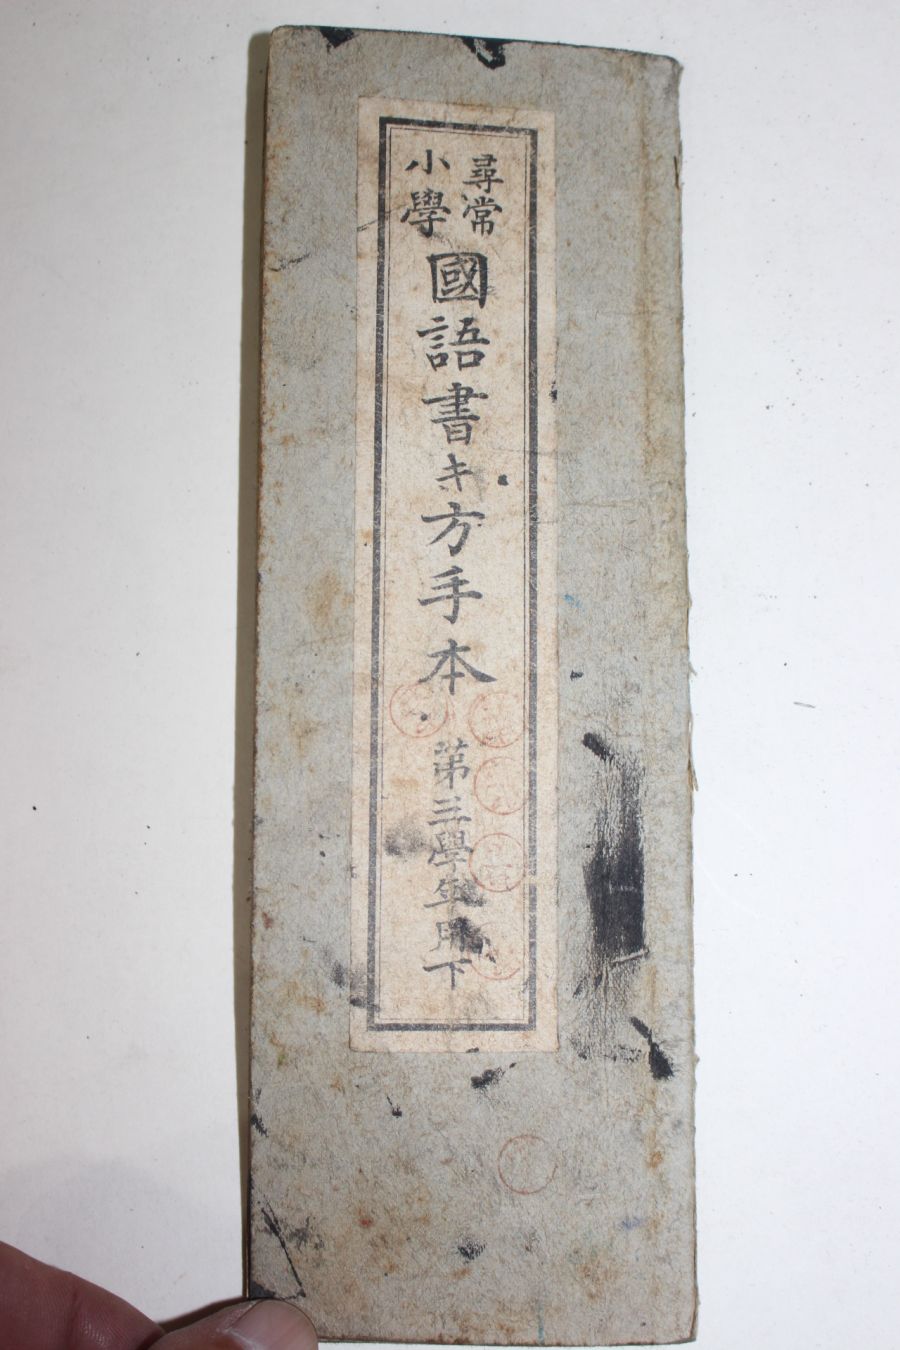 尋常
小學
國語書キ方手本
第三學年用下